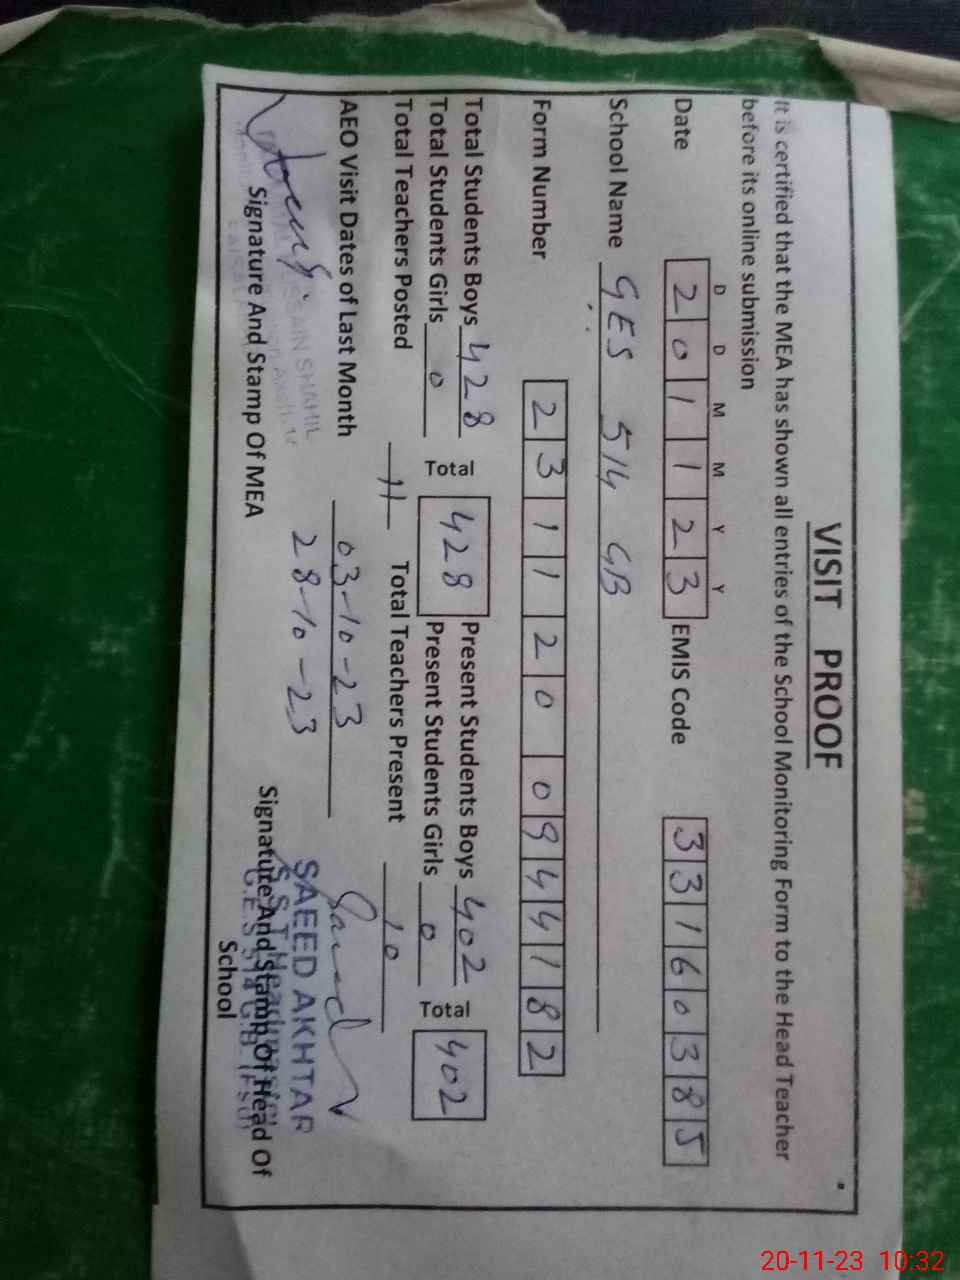 VISIT PROOF
It is certified that the MEA has shown all entries of the School Monitoring Form to the Head Teacher
before its online submission
D D M M Y Y
Date 2 0 1 1 2 3 EMIS Code 3 3 1 6 0 3 8 5
School Name GES 514 GB
Form Number 2 3 1 1 2 0 0 9 4 4 1 8 2
Total Students Boys 428 Total 428 Present Students Boys 402 Total 402
Total Students Girls 0 Present Students Girls 0
Total Teachers Posted 11 Total Teachers Present 10
AEO Visit Dates of Last Month 03-10-23
28-10-23
SAEED AKHTAR
Signature And Stamp Of MEA
Signature And Stamp Of Head Of
School
20-11-23 10:32